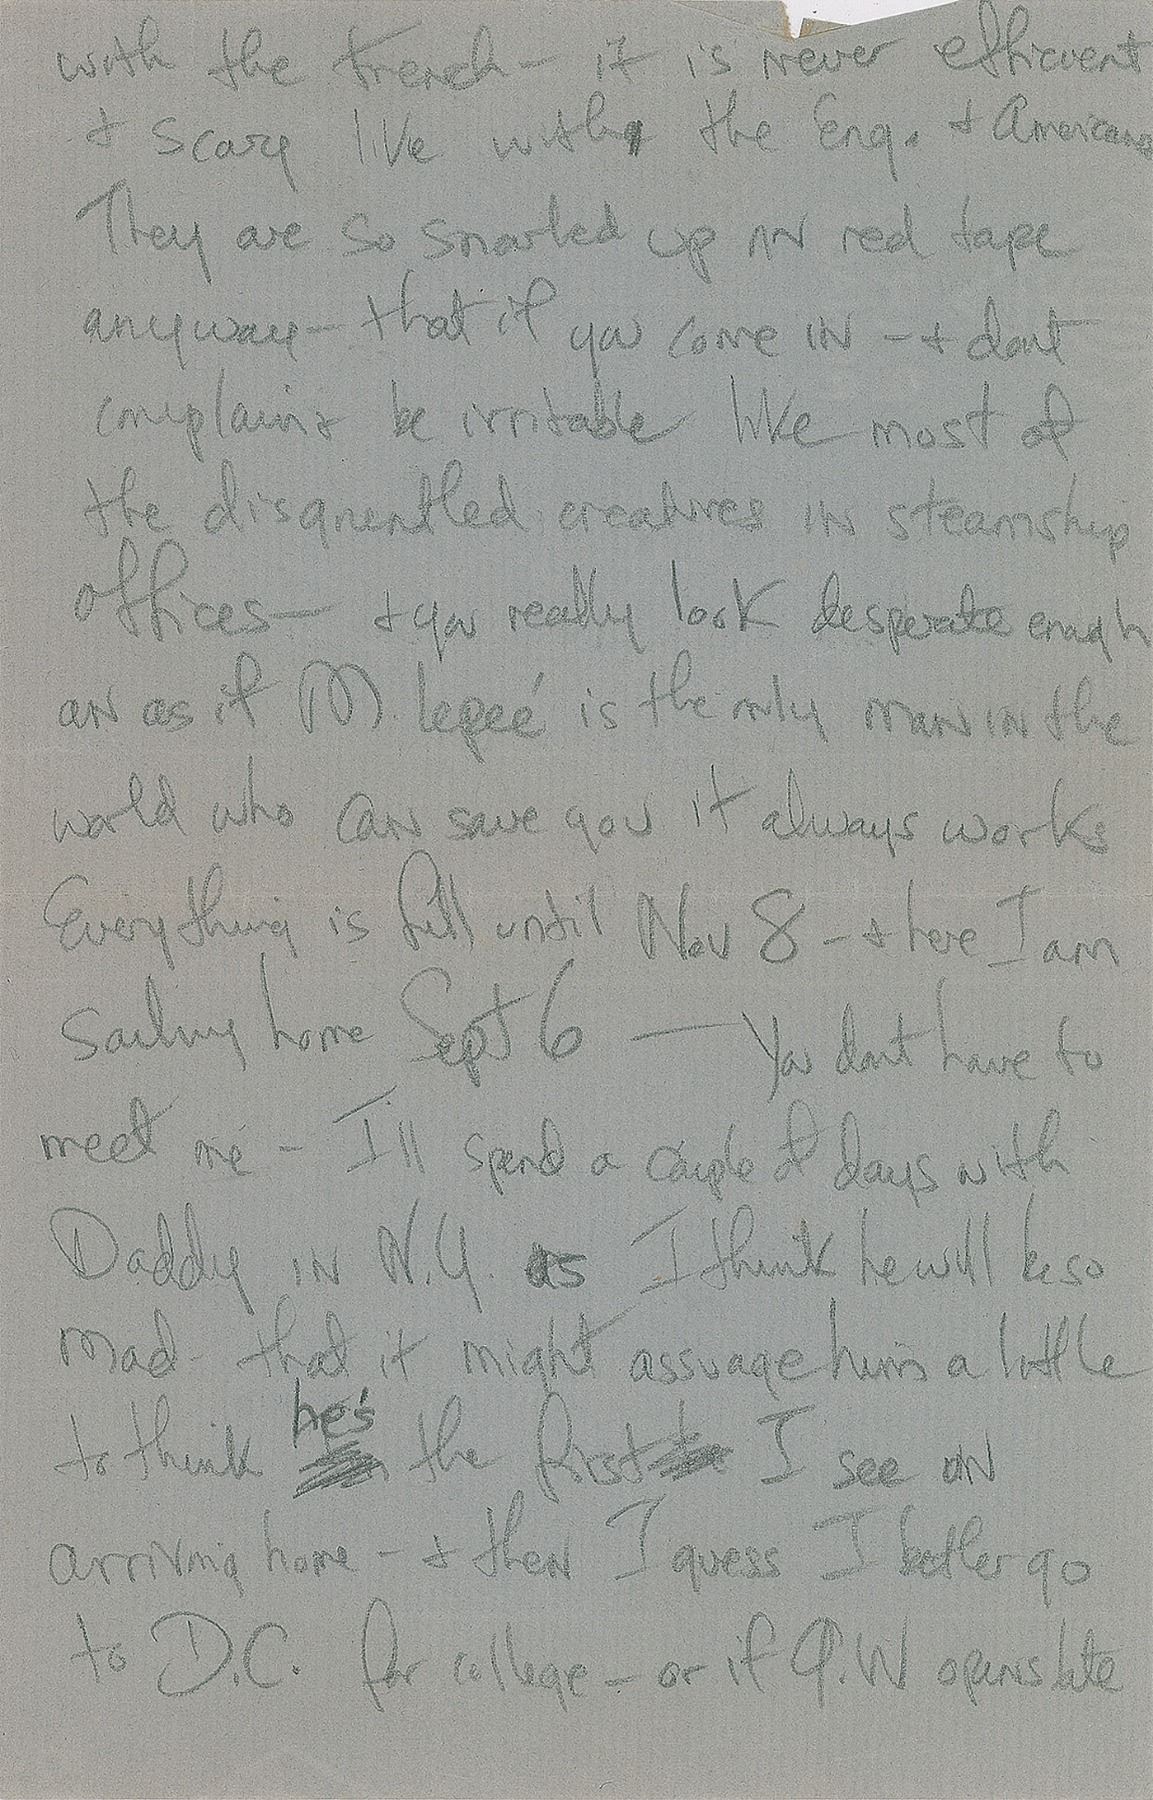 with the French - it is never efficient
+ scary like with the Eng. + Americans
They are so snarled up in red tape
anyway - that if you come in - + dont
complain + be irritable like most of
the disgruntled creatures in steamship
offices - + you really look desperate enough
an as if M. Lepeé is the only man in the
world who can save you it always works
Everything is full until Nov 8 - + here I am
Sailing home Sept 6 — You dont have to
meet me - I'll spend a couple of days with
Daddy in N.Y. as I think he will be so
mad - that it might assuage him a little
to think he's the first I see on
arriving home - + then I guess I better go
to D.C. for college - or if G.W opens late